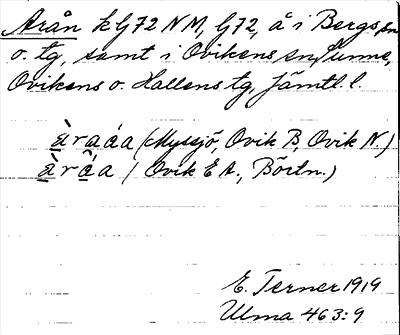 Arån k G72 NM, G72, å i Bergs sn
o. tg, samt i Ovikens sn, Sunne,
Ovikens o. Hallens tg, Jämtl. l.
àraáa (Myssjö, Ovik B, Ovik N.)
àrấa (Ovik E A., Börtn.)
E. Terner 1919
Ulma 463:9